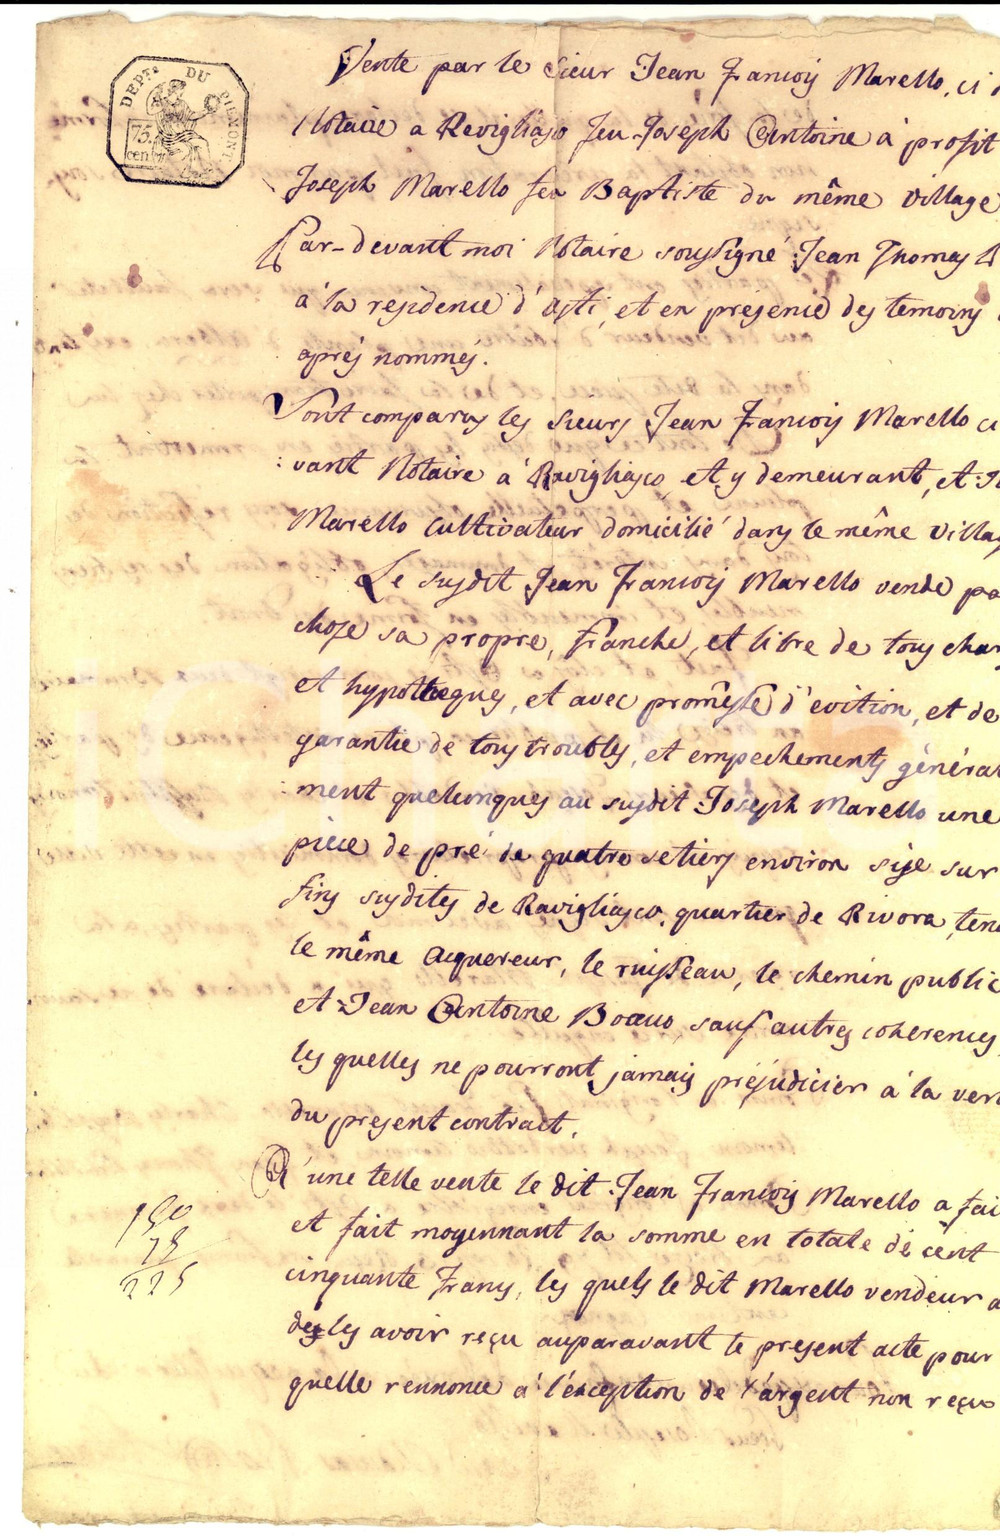 DEPT. DU PIEMONT.
75.
cen.
Vente par le Sieur Jean François Marello, ci d
Notaire a Revigliasco feu Joseph Antoine à profit
Joseph Marello feu Baptiste du même village
Par-devant moi Notaire soussigné Jean Thomas
à la residence d'Asti, et en presence des temoins
après nommés.
Sont comparus les sieurs Jean François Marello ci
vant Notaire à Ravigliasco, et y demeurant, et
Marello cultivateur domicilié dans le même villag
Le susdit Jean François Marello vende pa
chose sa propre, franche, et libre de tous char
et hypotheques, et avec promesse d'evition, et de
garantie de tous troubles, et empechements généra
ment quelconques au susdit Joseph Marello une
pièce de pré de quatre setiers environ sise sur
fins susdites de Ravigliasco, quartier de Rivora, ten
le même acquereur, le ruisseau, le chemin public
et Jean Antoine sauf autres coherences
les quelles ne pourront jamais préjudicier à la ver
du present contract.
A' une telle vente le dit Jean François Marello a fai
et fait moyennant la somme en totale de cent
cinquante francs, les quels le dit Marello vendeur a
de les avoir reçu auparavant le present acte pour
quelle rennonce à l'exception de l'argent non reçu
150
75
225